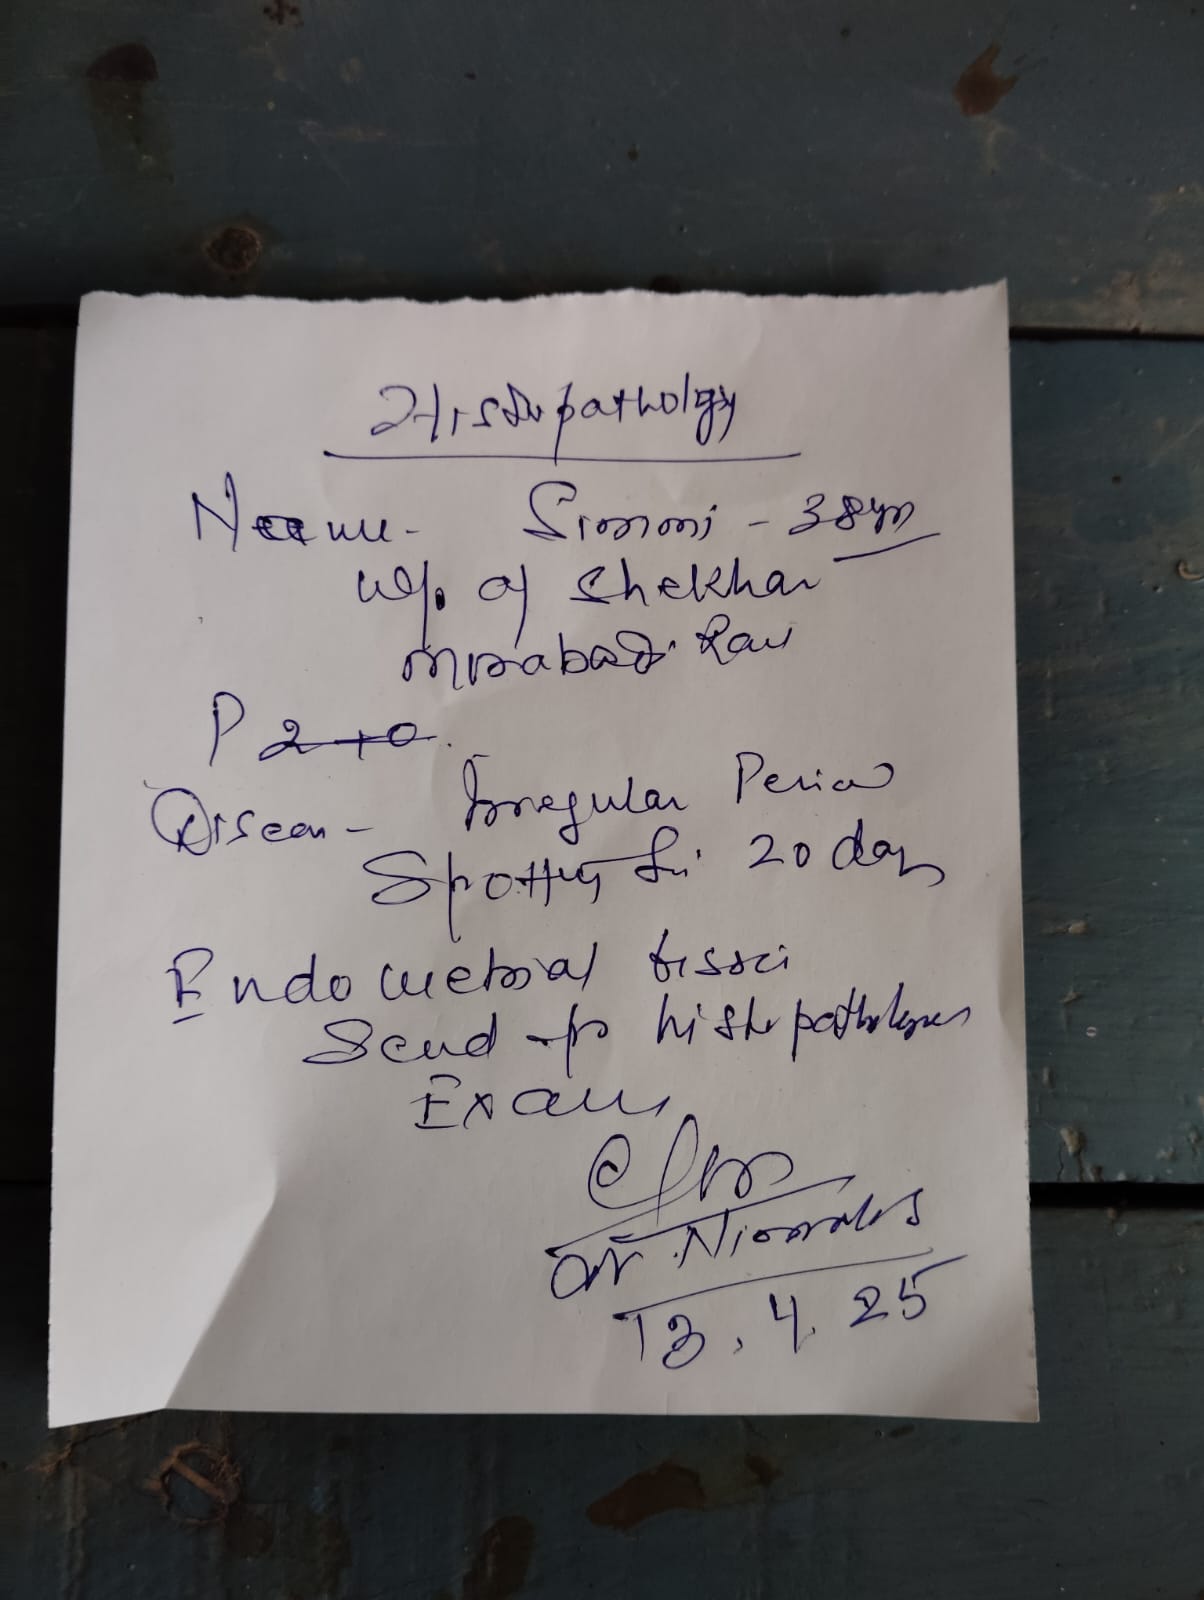 Histopathology
Name - Simmi - 38 yrs
W/o of Shekhar
P 2+0
Disease - Irregular Period
Spotting for 20 days
Endometrial tissue
Send for histopathology
Exam
Dr. Nirmala
13.4.25